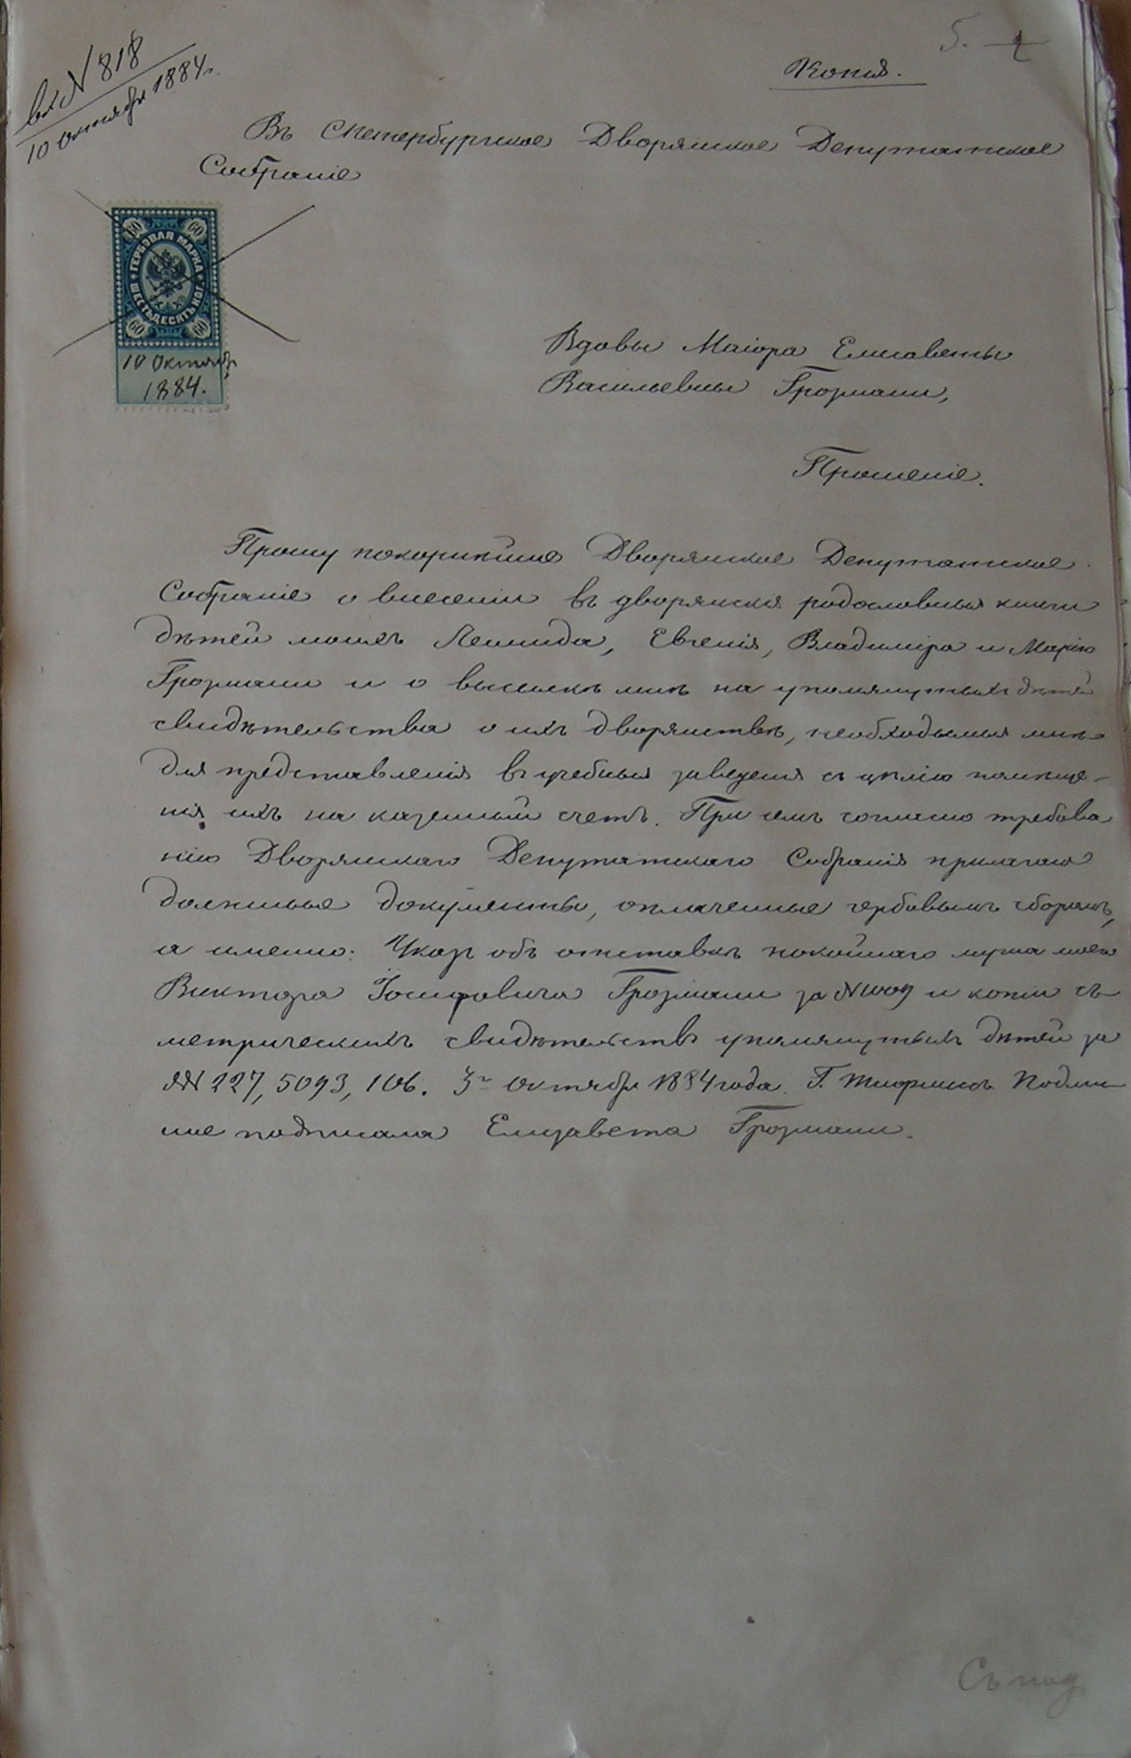 вх № 818
10 Октября 1884 г.
5.
Копія.
Въ СПетербургское Дворянское Депутатское
Собраніе
60 60
ГЕРБОВАЯ МАРКА
ШЕСТЬДЕСЯТЪ КОП.
60 60
10 Октября
1884.
Вдовы Маіора Елисаветы
Васильевны Грозмани,
Прошеніе.
Прошу покорнѣйше Дворянское Депутатское
Собраніе о внесеніи въ дворянскія родословныя книги
дѣтей моихъ Леонида, Евгенія, Владиміра и Марію
Грозмани и о высылкѣ мнѣ на упомянутыхъ дѣтей
свидѣтельства о ихъ дворянствѣ, необходимыя мнѣ
для представленія въ учебныя заведенія съ цѣлію помѣще-
нія ихъ на казенный счетъ. При чемъ согласно требова
нію Дворянскаго Депутатскаго Собранія прилагаю
должные документы, оплаченные гербовымъ сборомъ,
а именно: Указъ объ отставкѣ покойнаго мужа моего
Виктора Іосифовича Грозмани за № и копіи съ
метрическихъ свидѣтельствъ упомянутыхъ дѣтей за
№№ 227, 5093, 106. 3го Октября 1884 года. Г. Тифлисъ Подлин
ное подписала Елизавета Грозмани.
Съ под